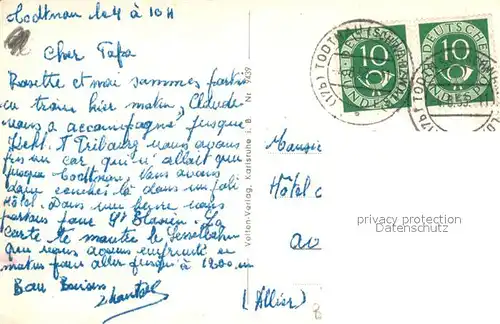 Todtnau le 4 à 10 H
Cher Papa
Rosette et moi sommes partis
en train hier matin, Claude
nous a accompagné jusque
A Fribourg nous avons
pris un car, qui n'allait que
jusque Todtnau, nous avons
donc couché là dans un joli
Hôtel. Dans une heure nous
partons pour St Blasien. La
carte te montre le Sesselbahn
que nous avons emprunté ce
matin pour aller jusqu'à 1200 m
Bon Baisers
Vetten-Verlag, Karlsruhe i. B. Nr. 7439
(17b) TODTNAU (SCHWARZWALD)
DEUTSCHE BUNDESPOST
10
DEUTSCHE BUNDESPOST
10
(17b) TODTNAU
Hôtel
(Allier)
privacy protection
Datenschutz